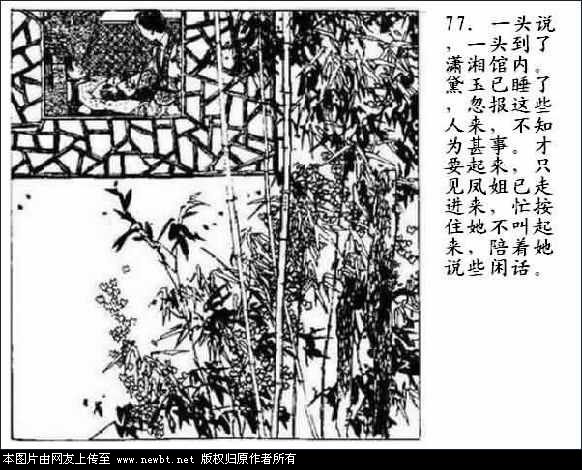 77. 一头说
，一头到了
潇湘馆内。
黛玉已睡了
，忽报这些
人来，不知
为甚事。才
要起来，只
见凤姐已走
进来，忙按
住她不叫起
来，陪着她
说些闲话。
本图片由网友上传至 www.newbt.net 版权归原作者所有